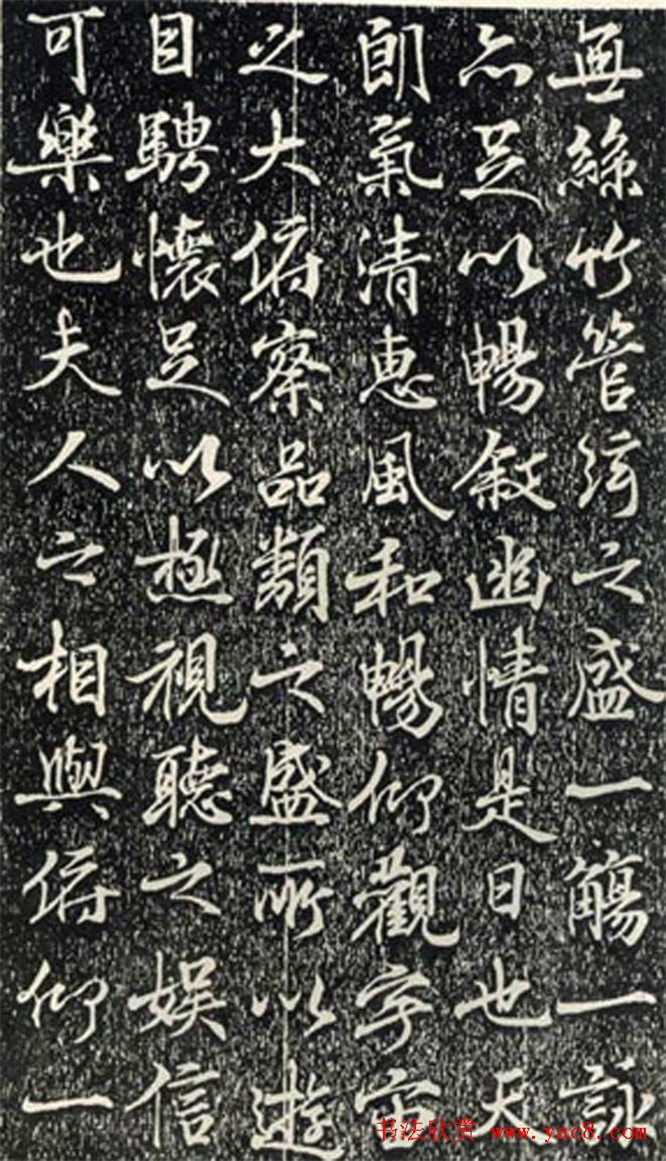 無絲竹管弦之盛一觴一詠
亦足以暢敘幽情是日也天
朗氣清惠風和暢仰觀宇宙
之大俯察品類之盛所以遊
目騁懷足以極視聽之娛信
可樂也夫人之相與俯仰一
书法欣赏 www.yac8.com